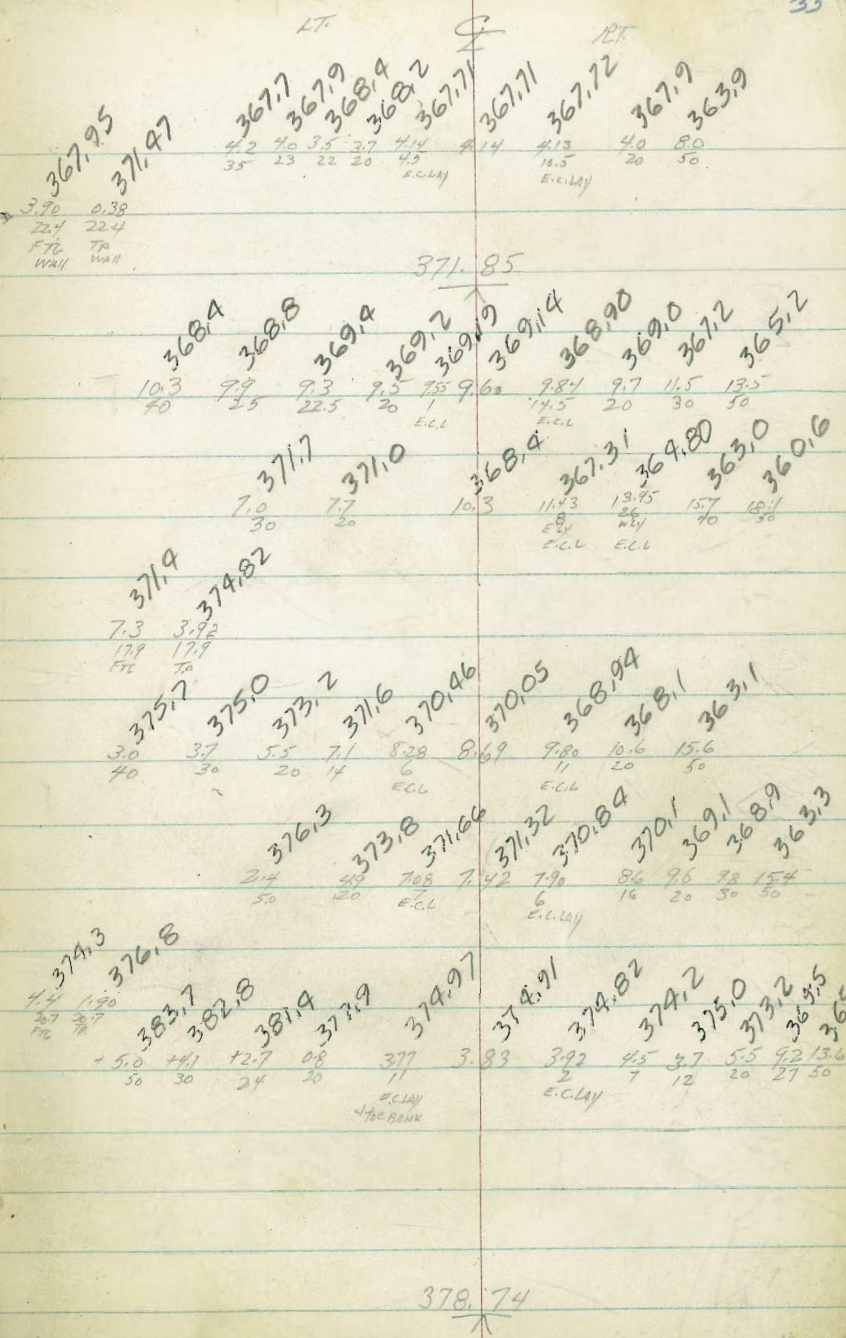 33
LT. ℄ RT.
367.7 367.9 368.4 368.2 367.71 367.71 367.72 367.9 363.9
4.2 4.0 3.5 3.7 4.14 4.14 4.13 4.0 8.0
35 23 22 20 4.5 10.5 20 50
E.C.LAY E.C.LAY
367.95 371.47
3.90 0.38
22.4 22.4
FTG TP
WALL WALL
371.85
368.4 368.8 369.4 369.2 369.19 369.14 368.90 369.0 367.2 365.2
10.3 9.9 9.3 9.5 9.55 9.60 9.84 9.7 11.5 13.5
40 25 22.5 20 1 14.5 20 30 50
E.C.L E.C.L
371.7 371.0 368.4 367.31 364.80 363.0 360.6
7.0 7.7 10.3 11.43 13.95 15.7 18.1
30 20 8 26 40 50
ELY WLY
E.C.L E.C.L
371.4 374.82
7.3 3.92
17.9 17.9
FTG
375.7 375.0 373.2 371.6 370.46 370.05 368.94 368.1 363.1
3.0 3.7 5.5 7.1 8.28 8.69 9.80 10.6 15.6
40 30 20 14 6 11 20 50
E.C.L E.C.L
376.3 373.8 371.66 371.32 370.84 370.1 369.1 368.9 363.3
2.4 4.9 7.08 7.42 7.90 8.6 9.6 9.8 15.4
50 20 7 6 16 20 30 50
E.C.L E.C.LAY
374.3 376.8
4.4 1.90
20.7 20.7
FTG TP
383.7 382.8 381.4 377.9 374.97 374.91 374.82 374.2 375.0 373.2 369.5 365
+5.0 +4.1 +2.7 0.8 3.77 3.83 3.92 4.5 3.7 5.5 9.2 13.6
50 30 24 20 11 2 7 12 20 27 50
E.C.LAY E.C.LAY
+TOE BANK
378.74